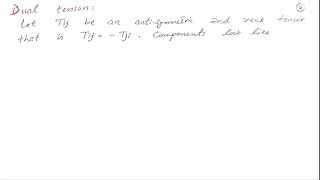 Dual tensor:
Let Tij be an anti-symmetric 2nd rank tensor
that is Tij = - Tji . Components look like